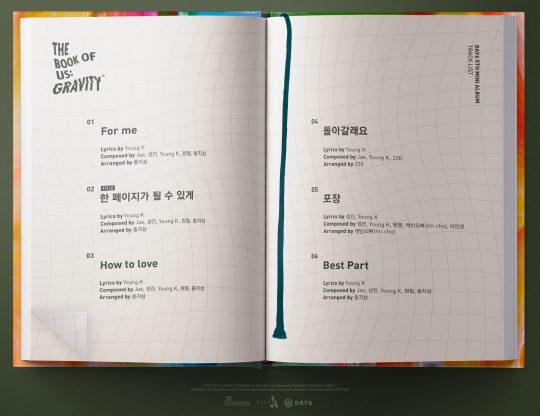 THE
BOOK OF
US:
GRAVITY
01
For me
Lyrics by Young K
Composed by Jae, 성진, Young K, 원필, 홍지상
Arranged by 홍지상
02
TITLE
한 페이지가 될 수 있게
Lyrics by Young K
Composed by Jae, 성진, Young K, 원필, 홍지상
Arranged by 홍지상
03
How to love
Lyrics by Young K
Composed by Jae, 성진, Young K, 원필, 홍지상
Arranged by 홍지상
DAY6 5TH MINI ALBUM
TRACK LIST
04
돌아갈래요
Lyrics by Young K
Composed by Jae, Young K, 220
Arranged by 220
05
포장
Lyrics by 성진, Young K
Composed by 성진, Young K, 원필, 캐빈오빠(mr.cho), 이민경
Arranged by 캐빈오빠(mr.cho)
06
Best Part
Lyrics by Young K
Composed by Jae, 성진, Young K, 원필, 홍지상
Arranged by 홍지상
DAY6